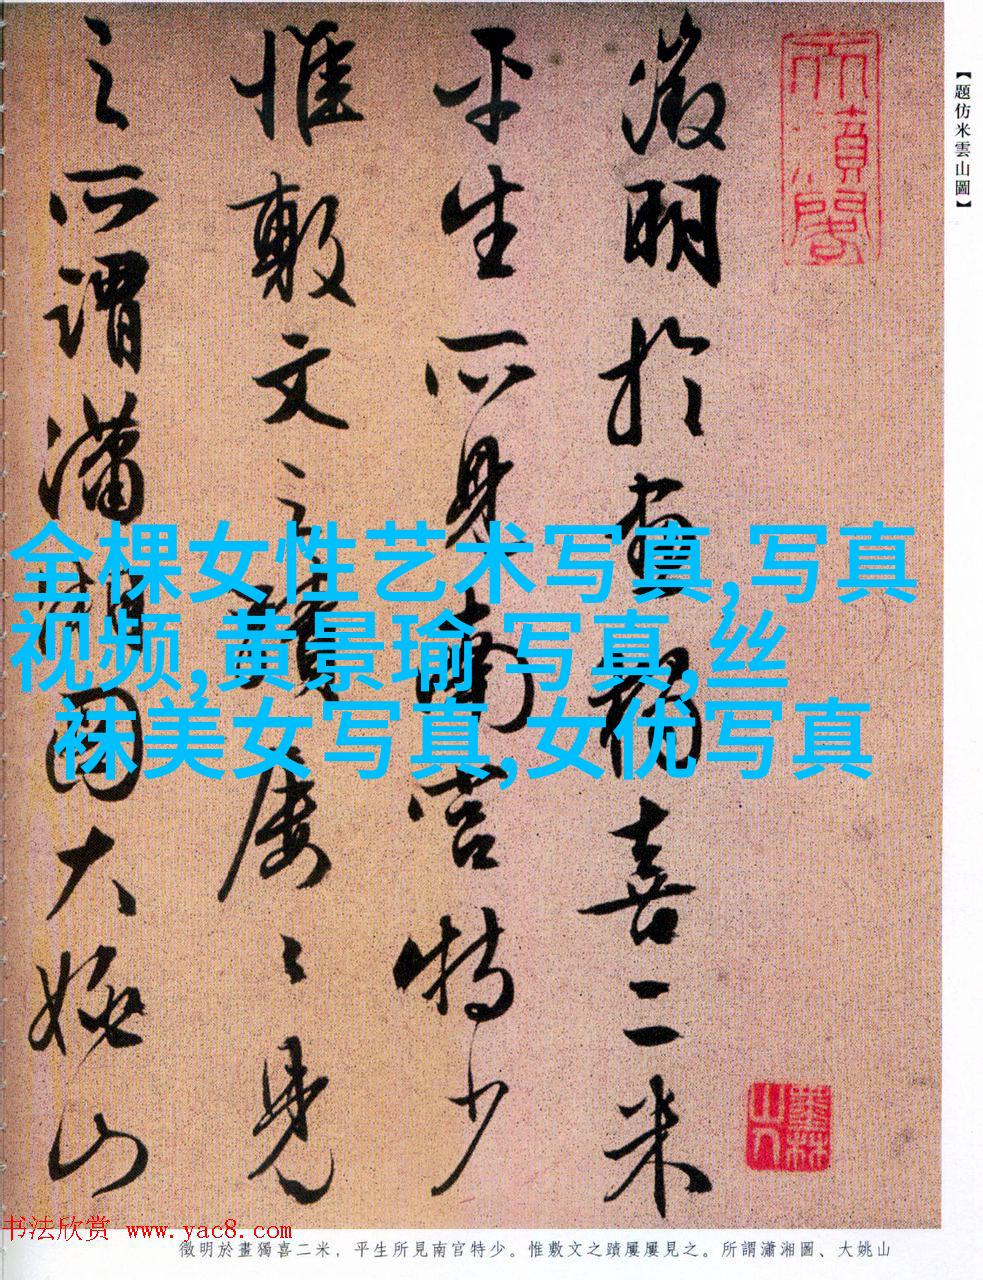 【題仿米雲山圖】
徵明於畫獨喜二米
平生所見南宫特少
惟敷文之蹟屢〻見
之所謂瀟湘圖大姚山
墨林
山人
全棵女性艺术写真,写真
视频,黄景瑜 写真,丝
袜美女写真,女优写真
书法欣赏 www.yac8.com
徵明於畫獨喜二米，平生所見南官特少。惟敷文之蹟屢屢見之。所謂瀟湘圖、大姚山